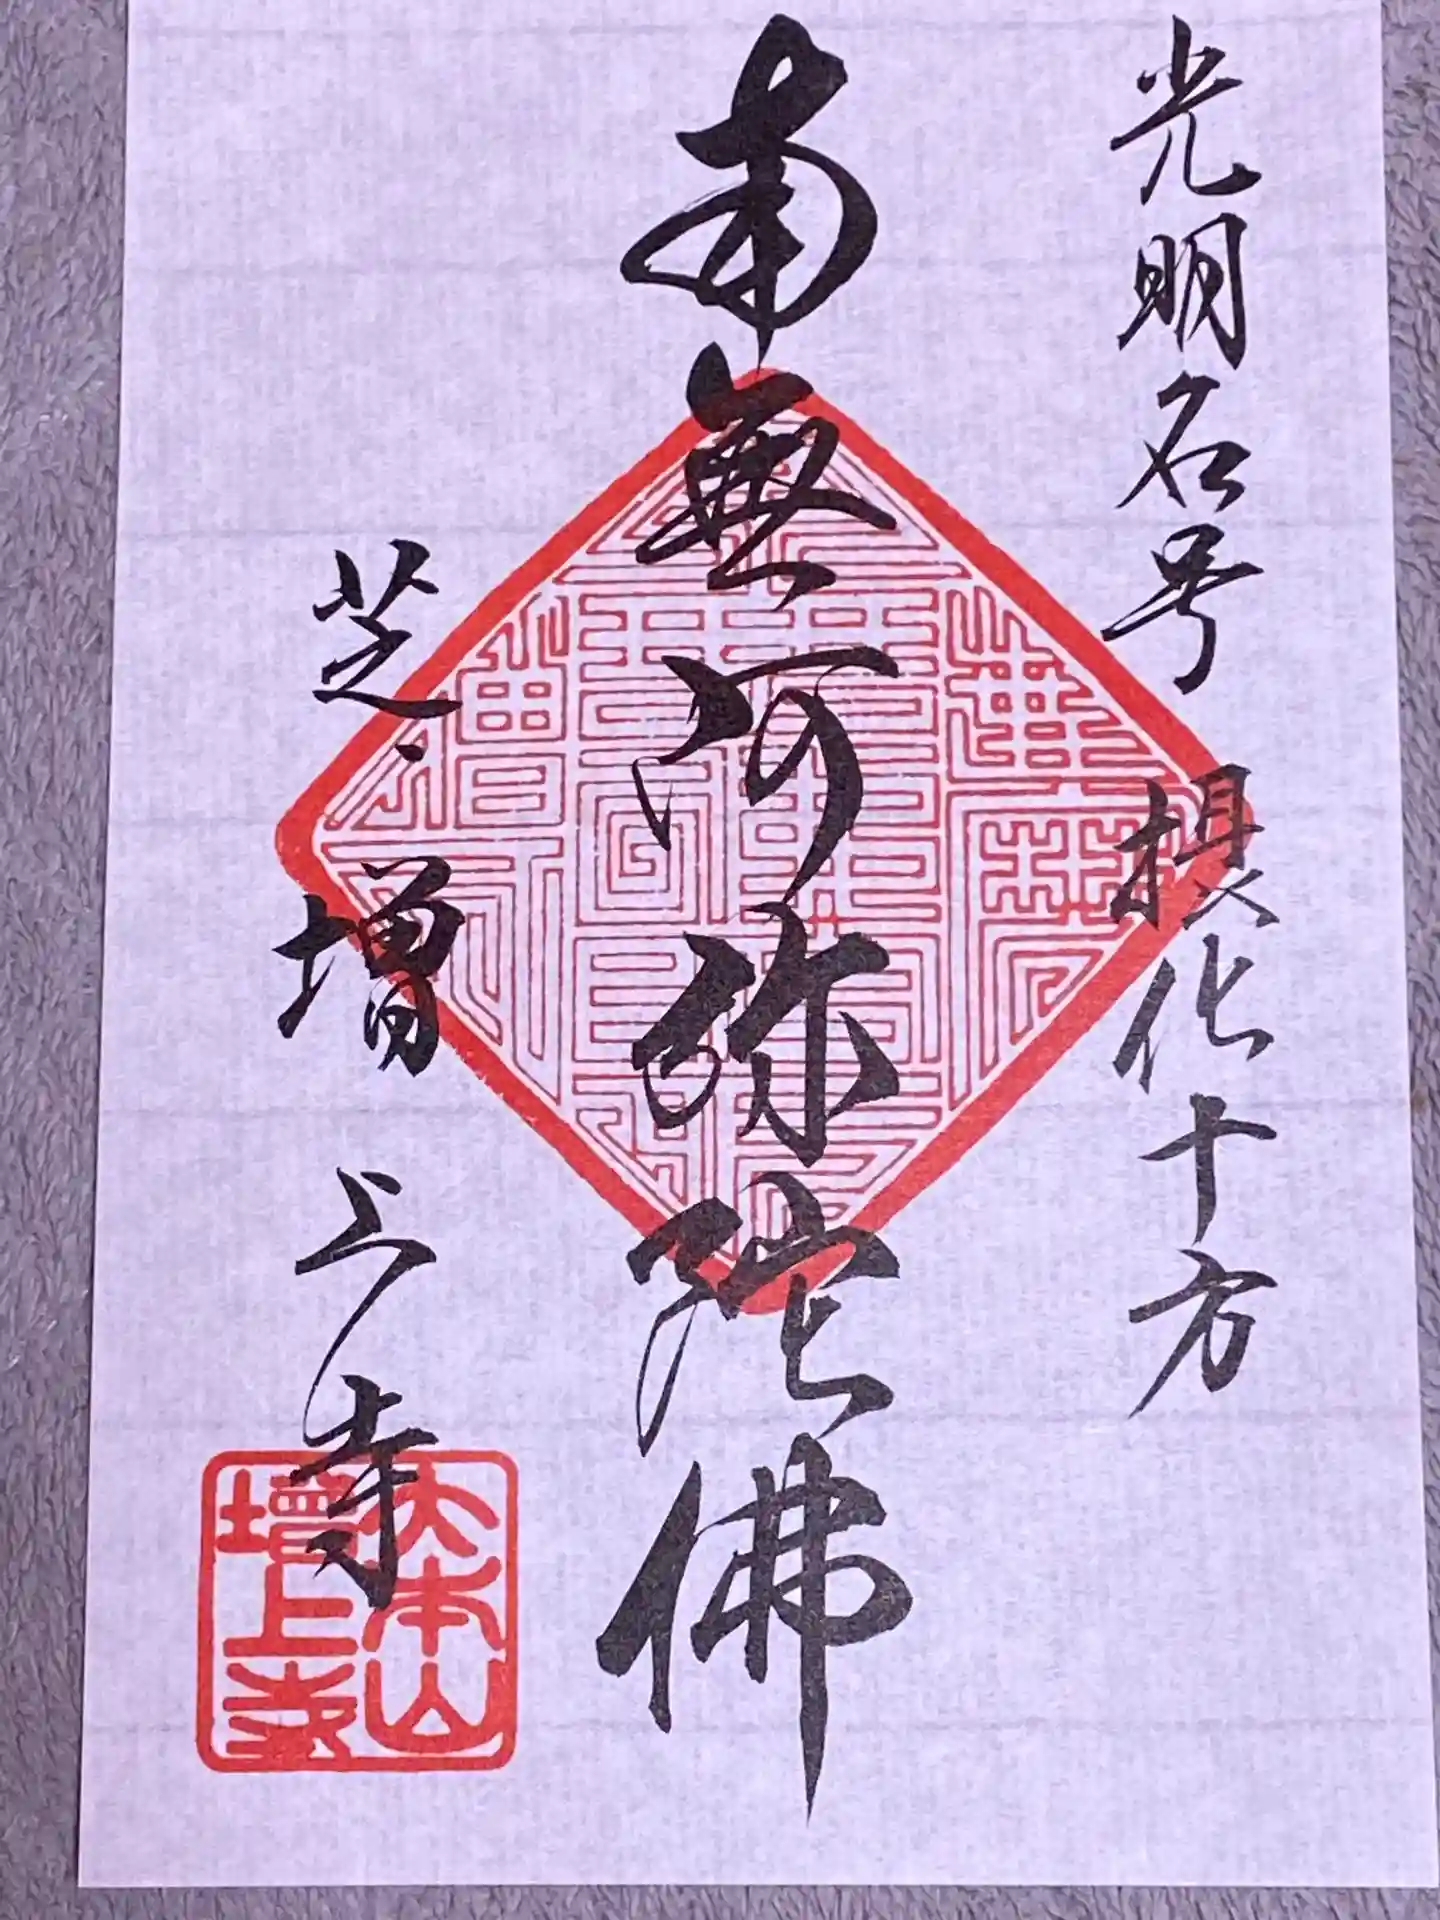 光明名号
摂化十方
南無阿弥陀佛
芝・増上寺
大本山
増上寺